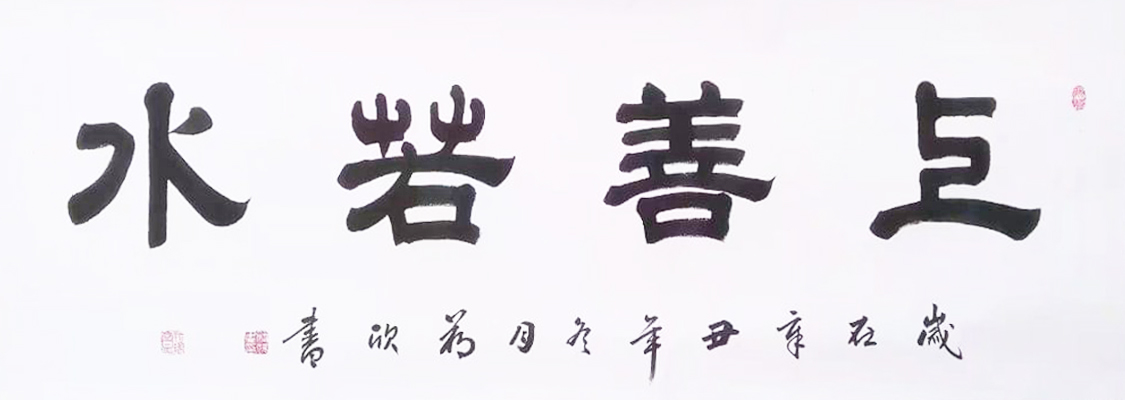 上善若水
歲在辛丑年冬月欣書